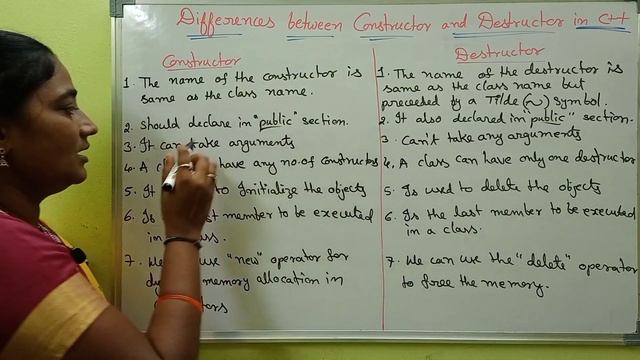 Differences between Constructor and Destructor in C++
Constructor
1. The name of the constructor is
same as the class name.
2. Should declare in "public" section.
3. It can take arguments
4. A have any no. of constructors
5. It to Initialize the objects
6. Is member to be executed
in class.
7. use "new" operator for
memory allocation in
Destructor
1. The name of the destructor is
same as the class name but
preceeded by a Tilde (~) symbol.
2. It also declared in public" section.
3. Can't take any arguments
4. A class can have only one destructor
5. Is used to delete the objects
6. Is the last member to be executed
in a class.
7. We can use the "delete" operator
to free the memory.